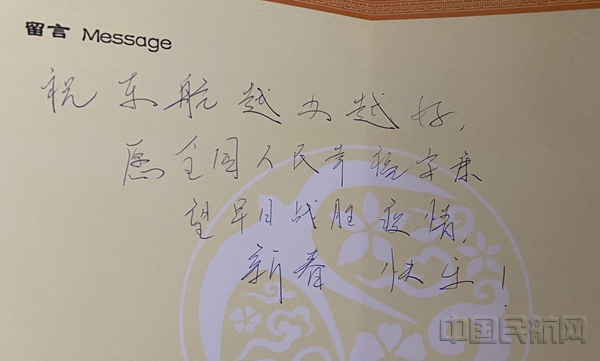 留言 Message
祝东航越办越好,
愿全国人民幸福安康
望早日战胜疫情,
新春 快乐!
中国民航网